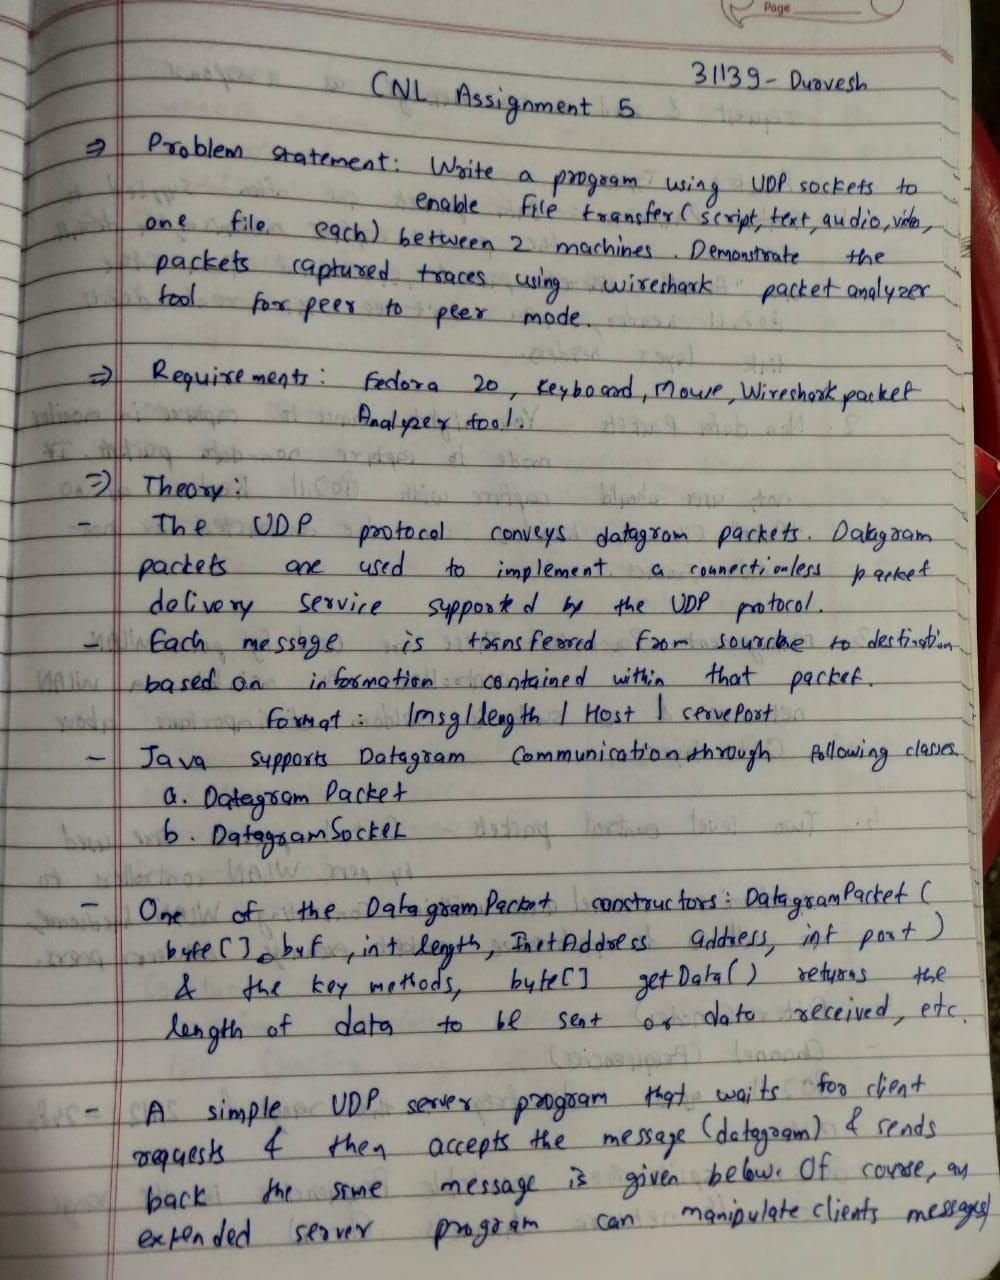 Page
31139 - Durvesh
CNL Assignment 5
⇒ Problem statement: Write a program using UDP sockets to
enable file transfer (script, text, audio, video,
one file each) between 2 machines. Demonstrate the
packets captured traces using wireshark packet analyzer
tool for peer to peer mode.
⇒ Requirements: Fedora 20, Keyboard, Mouse, Wireshark packet
Analyzer tool.
⇒ Theory:
- The UDP protocol conveys datagram packets. Datagram
packets are used to implement a connectionless packet
delivery service supported by the UDP protocol.
- Each message is transferred from sourcbe to destination
based on information contained within that packet.
format: |msg|length | Host | servePort
- Java supports Datagram Communication through following classes
a. Datagram Packet
b. DatagramSocket
- One of the DatagramPacket constructors: DatagramPacket (
byte[] buf, int length, InetAddress address, int port)
& the key methods, byte[] getData() returns the
length of data to be sent or data received, etc.
- A simple UDP server program that waits for client
requests & then accepts the message (datagram) & sends
back the same message is given below. Of course, an
extended server program can manipulate clients messages